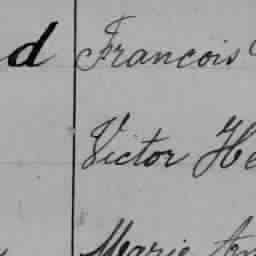 d Francois
Victor He
Marie Am